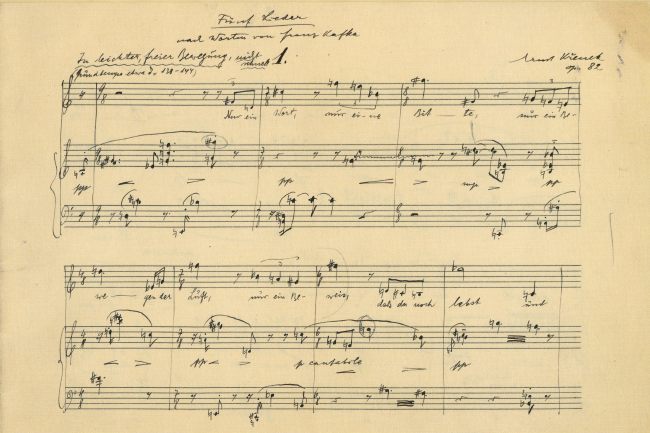 Fünf Lieder
nach Worten von Franz Kafka
In leichter, freier Bewegung, nicht rasch 1.
(Grundtempo etwa 138-144) Ernst Křenek
op. 82
Nur ein Wort, nur ei-ne Bit - te, nur ein Be-
pp pp mp pp
we - gen der Luft, nur ein Be- weis, dass du noch lebst und
pp p cantabile pp